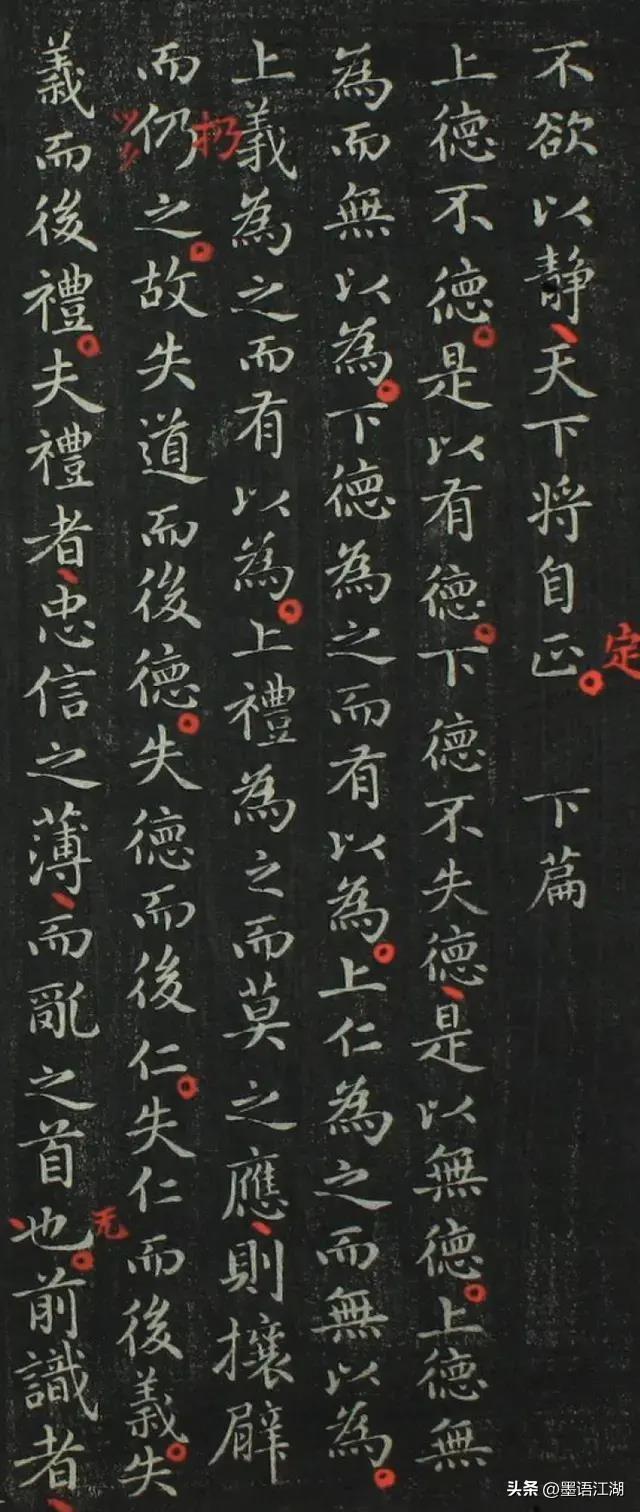 不欲以静、天下将自正。 下篇
定
上德不德。是以有德。下德不失德、是以無德。上德無
為而無以為。下德為之而有以為。上仁為之而無以為。
上義為之而有以為。上禮為之而莫之應、則攘臂
扔
而仍之。故失道而後德。失德而後仁。失仁而後義。失
義而後禮。夫禮者、忠信之薄、而亂之首、也。前識者、
无
头条 @墨语江湖